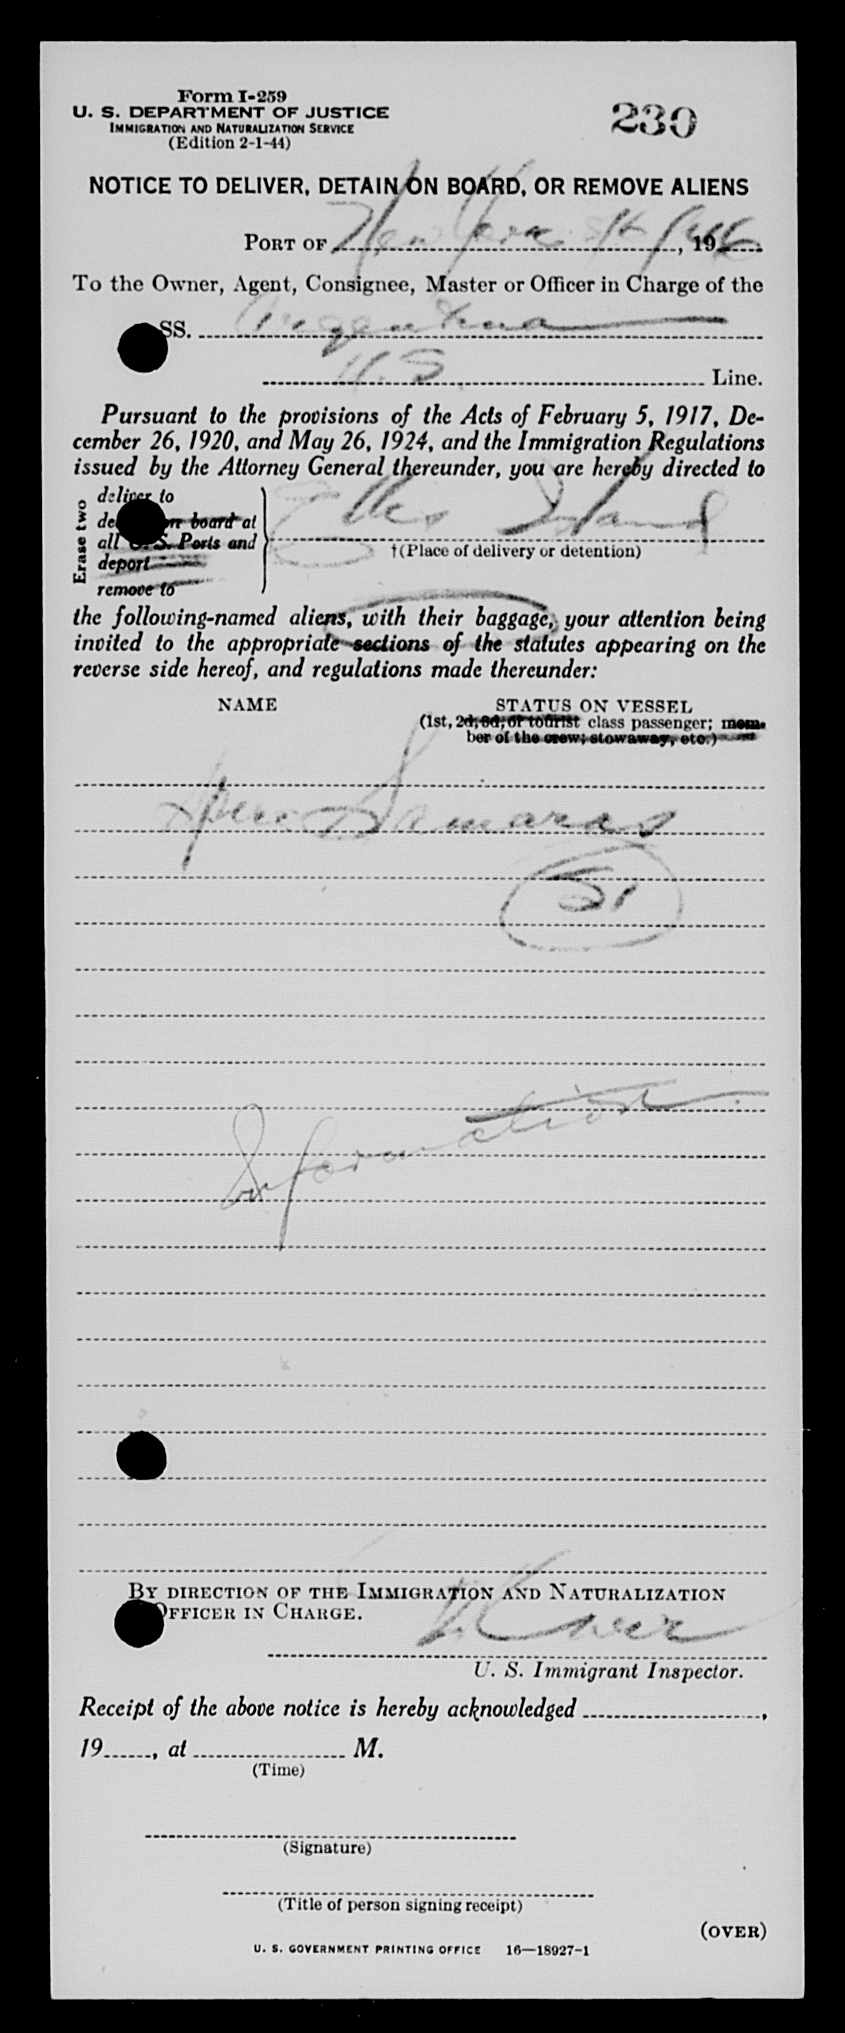 Form I-259
U. S. DEPARTMENT OF JUSTICE
IMMIGRATION AND NATURALIZATION SERVICE
(Edition 2-1-44)
230
NOTICE TO DELIVER, DETAIN ON BOARD, OR REMOVE ALIENS
PORT OF New York, 1946
To the Owner, Agent, Consignee, Master or Officer in Charge of the
SS. Argentina
U.S. Line.
Pursuant to the provisions of the Acts of February 5, 1917, De-
cember 26, 1920, and May 26, 1924, and the Immigration Regulations
issued by the Attorney General thereunder, you are hereby directed to
Erase two
deliver to
on board at
all U. S. Ports and
deport
remove to
Ellis Island
†(Place of delivery or detention)
the following-named aliens, with their baggage, your attention being
invited to the appropriate sections of the statutes appearing on the
reverse side hereof, and regulations made thereunder:
NAME
STATUS ON VESSEL
(1st, 2d, 3d, or tourist class passenger; mem-
ber of the crew; stowaway, etc.)
Samaras
Information
BY DIRECTION OF THE IMMIGRATION AND NATURALIZATION
OFFICER IN CHARGE.
U. S. Immigrant Inspector.
Receipt of the above notice is hereby acknowledged
19, at M.
(Time)
(Signature)
(Title of person signing receipt)
(OVER)
U. S. GOVERNMENT PRINTING OFFICE 16—18927-1